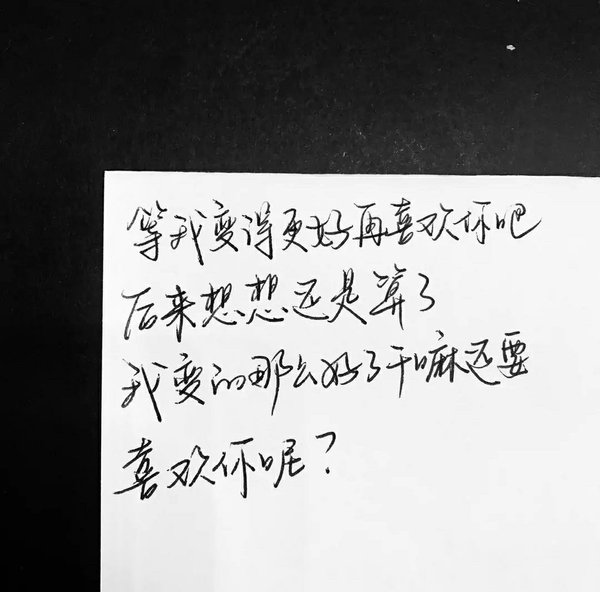 等我变得更好再喜欢你吧
后来想想还是算了
我变的那么好了干嘛还要
喜欢你呢？